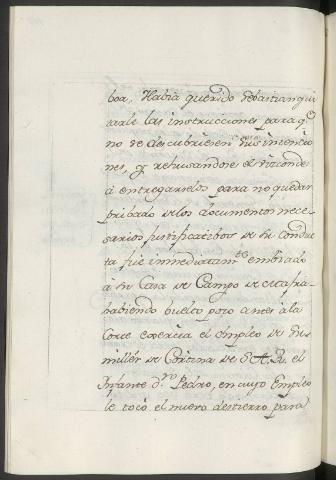 boa, Habia querido Sebastian qui
tarle las instrucciones para q.e
no se descubriesen sus intencio
nes, y rehusandose el Vizconde
á entregarselos para no quedar
pribado de los documentos nece-
sarios justificatibos de su conduc
ta fue immediatam.te embiado
á su Casa de Campo
habiendo buelto poco antes á la
Corte exercia el empleo de Su
millér de Cortina de S. A. R. el
Infante d.n Pedro, en cuyo Empleo
le tocó el nuevo destierro para